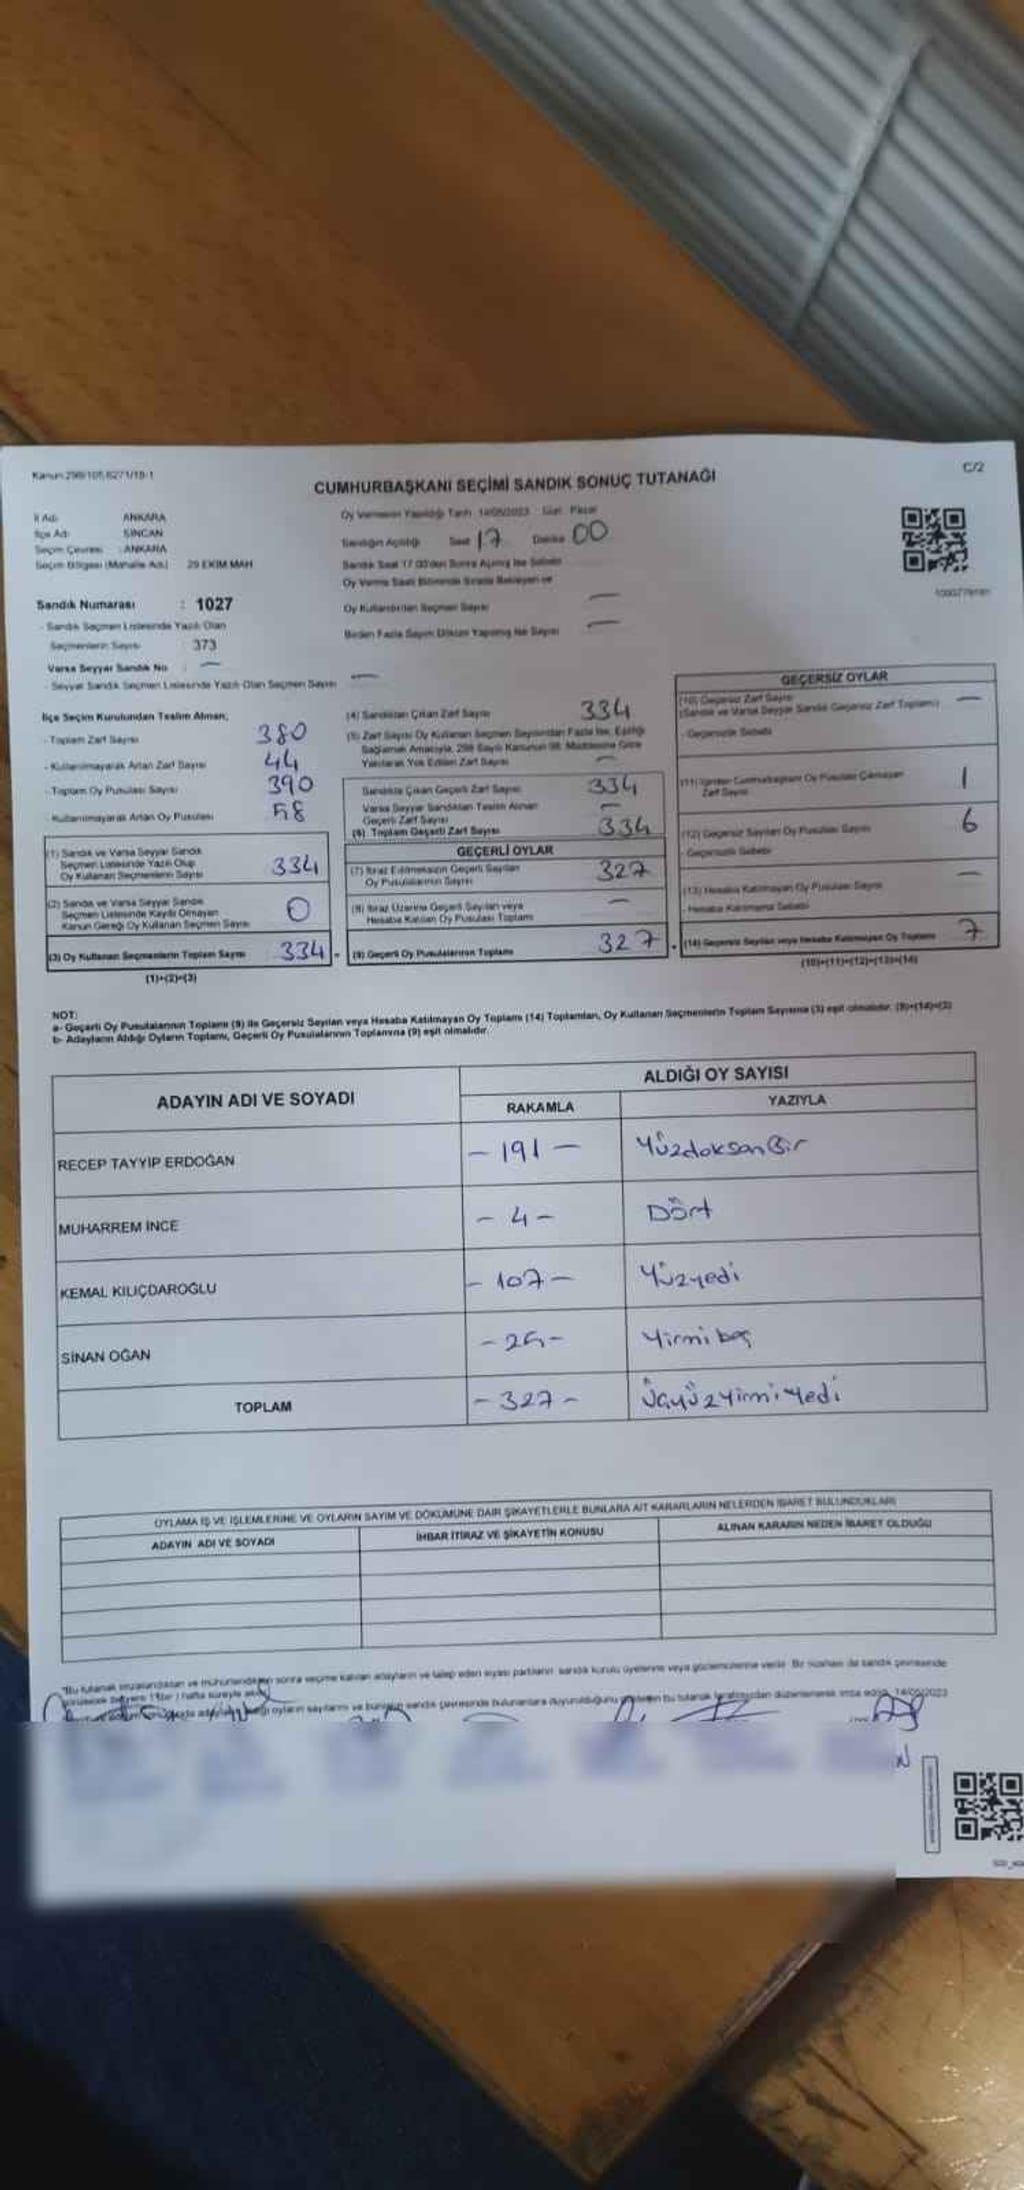 Kanun:298/105,6271/18-1
C/2
CUMHURBAŞKANI SEÇİMİ SANDIK SONUÇ TUTANAĞI
İl Adı ANKARA
İlçe Adı SİNCAN
Seçim Çevresi : ANKARA
Seçim Bölgesi (Mahalle Adı) 29 EKİM MAH
Oy Vermenin Yapıldığı Tarih 14/05/2023 Gün Pazar
Sandığın Açıldığı Saat 17 Dakika 00
Sandık Saat 17.00'den Sonra Açılmış İse Sebebi
Oy Verme Saati Bitiminde Sırada Bekleyen ve
Oy Kullandırılan Seçmen Sayısı —
Birden Fazla Sayım Döküm Yapılmış İse Sayısı —
Sandık Numarası : 1027
- Sandık Seçmen Listesinde Yazılı Olan
Seçmenlerin Sayısı 373
Varsa Seyyar Sandık No : —
- Seyyar Sandık Seçmen Listesinde Yazılı Olan Seçmen Sayısı —
İlçe Seçim Kurulundan Teslim Alınan;
- Toplam Zarf Sayısı 380
- Kullanılmayarak Artan Zarf Sayısı 44
- Toplam Oy Pusulası Sayısı 390
- Kullanılmayarak Artan Oy Pusulası 58
(1) Sandık ve Varsa Seyyar Sandık
Seçmen Listesinde Yazılı Olup
Oy Kullanan Seçmenlerin Sayısı 334
(2) Sandık ve Varsa Seyyar Sandık
Seçmen Listesinde Kaydı Olmayan
Kanun Gereği Oy Kullanan Seçmen Sayısı 0
(3) Oy Kullanan Seçmenlerin Toplam Sayısı 334
(1)+(2)=(3)
(4) Sandıktan Çıkan Zarf Sayısı 334
(5) Zarf Sayısı Oy Kullanan Seçmen Sayısından Fazla İse, Eşitliği
Sağlamak Amacıyla, 298 Sayılı Kanunun 98. Maddesine Göre
Yakılarak Yok Edilen Zarf Sayısı —
Sandıkta Çıkan Geçerli Zarf Sayısı 334
Varsa Seyyar Sandıktan Teslim Alınan
Geçerli Zarf Sayısı —
(6) Toplam Geçerli Zarf Sayısı 334
GEÇERLİ OYLAR
(7) İtiraz Edilmeksizin Geçerli Sayılan
Oy Pusulalarının Sayısı 327
(8) İtiraz Üzerine Geçerli Sayılan veya
Hesaba Katılan Oy Pusulası Toplamı —
(9) Geçerli Oy Pusulalarının Toplamı 327
GEÇERSİZ OYLAR
(10) Geçersiz Zarf Sayısı
(Sandık ve Varsa Seyyar Sandık Geçersiz Zarf Toplamı) —
- Geçersizlik Sebebi
(11) İçinden Cumhurbaşkanı Oy Pusulası Çıkmayan
Zarf Sayısı 1
(12) Geçersiz Sayılan Oy Pusulası Sayısı 6
- Geçersizlik Sebebi
(13) Hesaba Katılmayan Oy Pusulası Sayısı —
- Hesaba Katılmama Sebebi
(14) Geçersiz Sayılan veya Hesaba Katılmayan Oy Toplamı 7
(10)+(11)+(12)+(13)=(14)
NOT:
a- Geçerli Oy Pusulalarının Toplamı (9) ile Geçersiz Sayılan veya Hesaba Katılmayan Oy Toplamı (14) Toplamları, Oy Kullanan Seçmenlerin Toplam Sayısına (3) eşit olmalıdır. (9)+(14)=(3)
b- Adayların Aldığı Oyların Toplamı, Geçerli Oy Pusulalarının Toplamına (9) eşit olmalıdır.
ADAYIN ADI VE SOYADI ALDIĞI OY SAYISI
RAKAMLA YAZIYLA
RECEP TAYYİP ERDOĞAN - 191 - YüzdoksanBir
MUHARREM İNCE - 4 - Dört
KEMAL KILIÇDAROĞLU - 107 - Yüzyedi
SİNAN OĞAN - 25 - Yirmi beş
TOPLAM - 327 - Üçyüzyirmiyedi
OYLAMA İŞ VE İŞLEMLERİNE VE OYLARIN SAYIM VE DÖKÜMÜNE DAİR ŞİKAYETLERLE BUNLARA AİT KARARLARIN NELERDEN İBARET BULUNDUKLARI
ADAYIN ADI VE SOYADI İHBAR İTİRAZ VE ŞİKAYETİN KONUSU ALINAN KARARIN NEDEN İBARET OLDUĞU
"Bu tutanak imzalandıktan ve mühürlendikten sonra seçime katılan adayların ve talep eden siyasi partilerin sandık kurulu üyelerine veya gözlemcilerine verilir. Bir nüshası da sandık çevresinde
oyların sayılarını ve bunların sandık çevresinde bulunanlara duyurulduğunu bu tutanak tarafımızdan düzenlenerek imza edildi. 14/05/2023